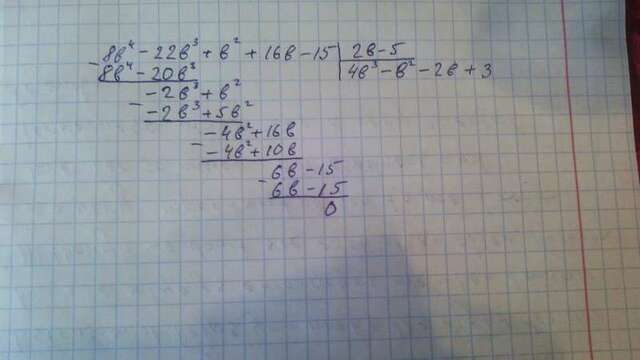 8в⁴ - 22в³ + в² + 16в - 15 | 2в - 5
- 8в⁴ - 20в³ | 4в³ - в² - 2в + 3
- 2в³ + в²
- - 2в³ + 5в²
- 4в² + 16в
- - 4в² + 10в
6в - 15
- 6в - 15
0